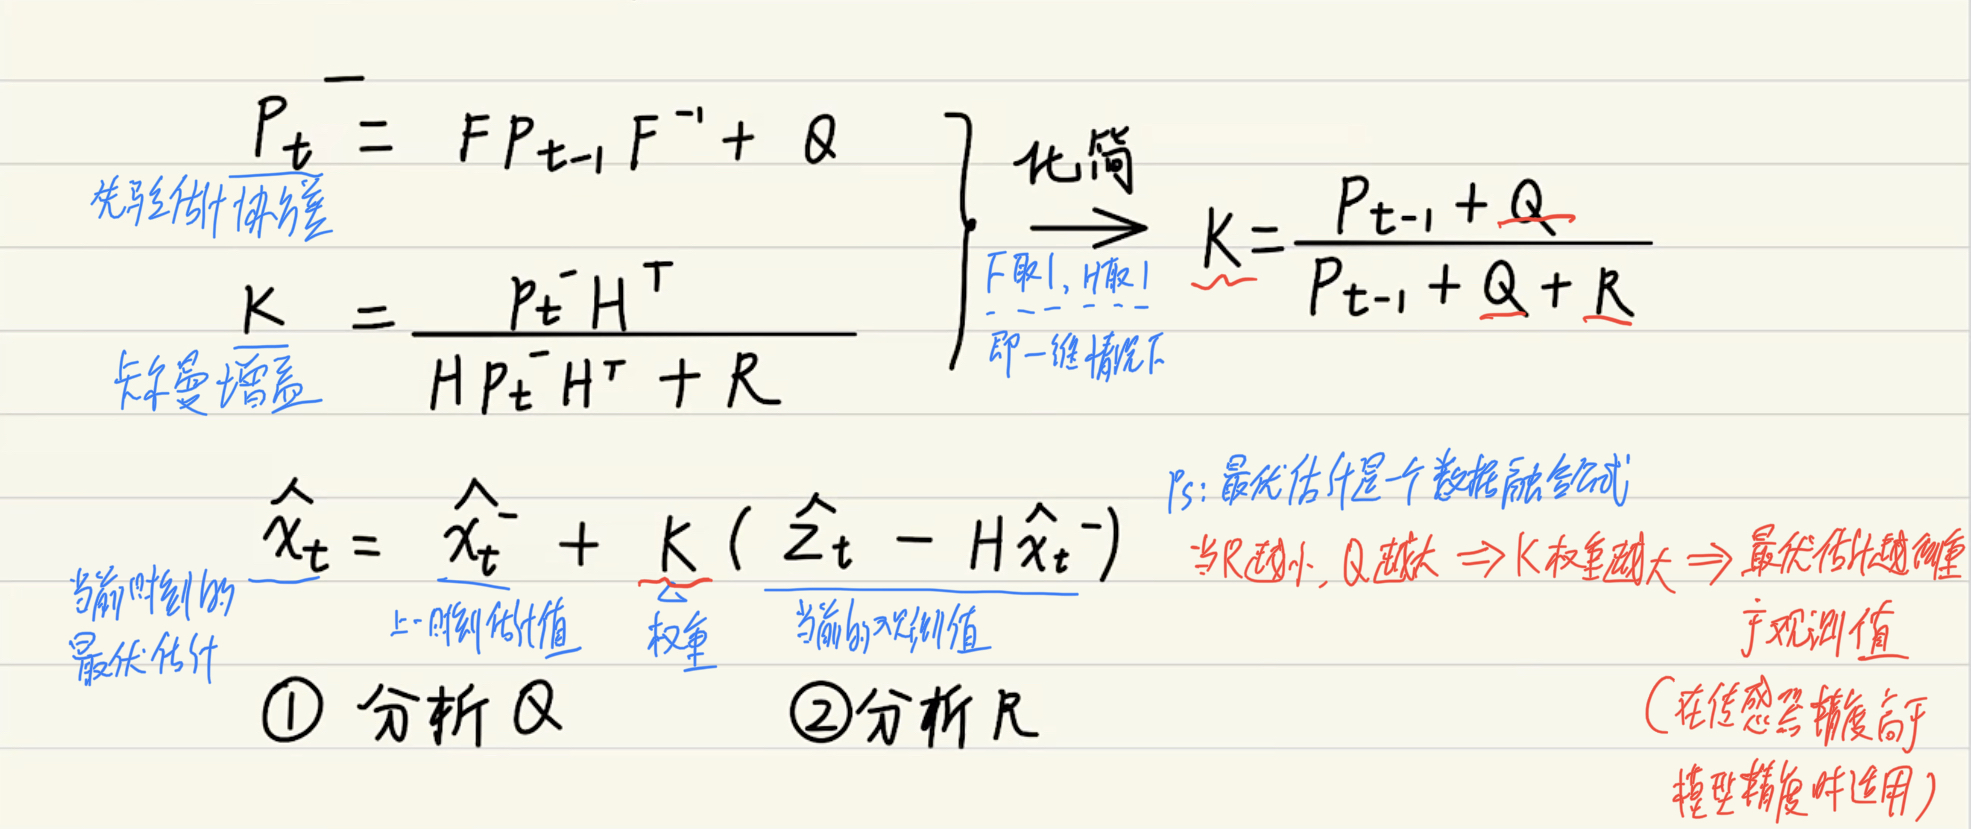 P_t^- = F P_{t-1} F^{-1} + Q
先验估计协方差
K = \frac{P_t^- H^T}{H P_t^- H^T + R}
卡尔曼增益
化简
F取1, H取1
即一维情况下
K = \frac{P_{t-1} + Q}{P_{t-1} + Q + R}
\hat{x}_t = \hat{x}_t^- + K ( \hat{z}_t - H \hat{x}_t^- )
当前时刻的
最优估计
上一时刻估计值
权重
当前的观测值
① 分析 Q
② 分析 R
Ps: 最优估计是一个数据融合公式
当R越小, Q越大 ⇒ K权重越大 ⇒ 最优估计越侧重
于观测值
(在传感器精度高于
模型精度时适用)